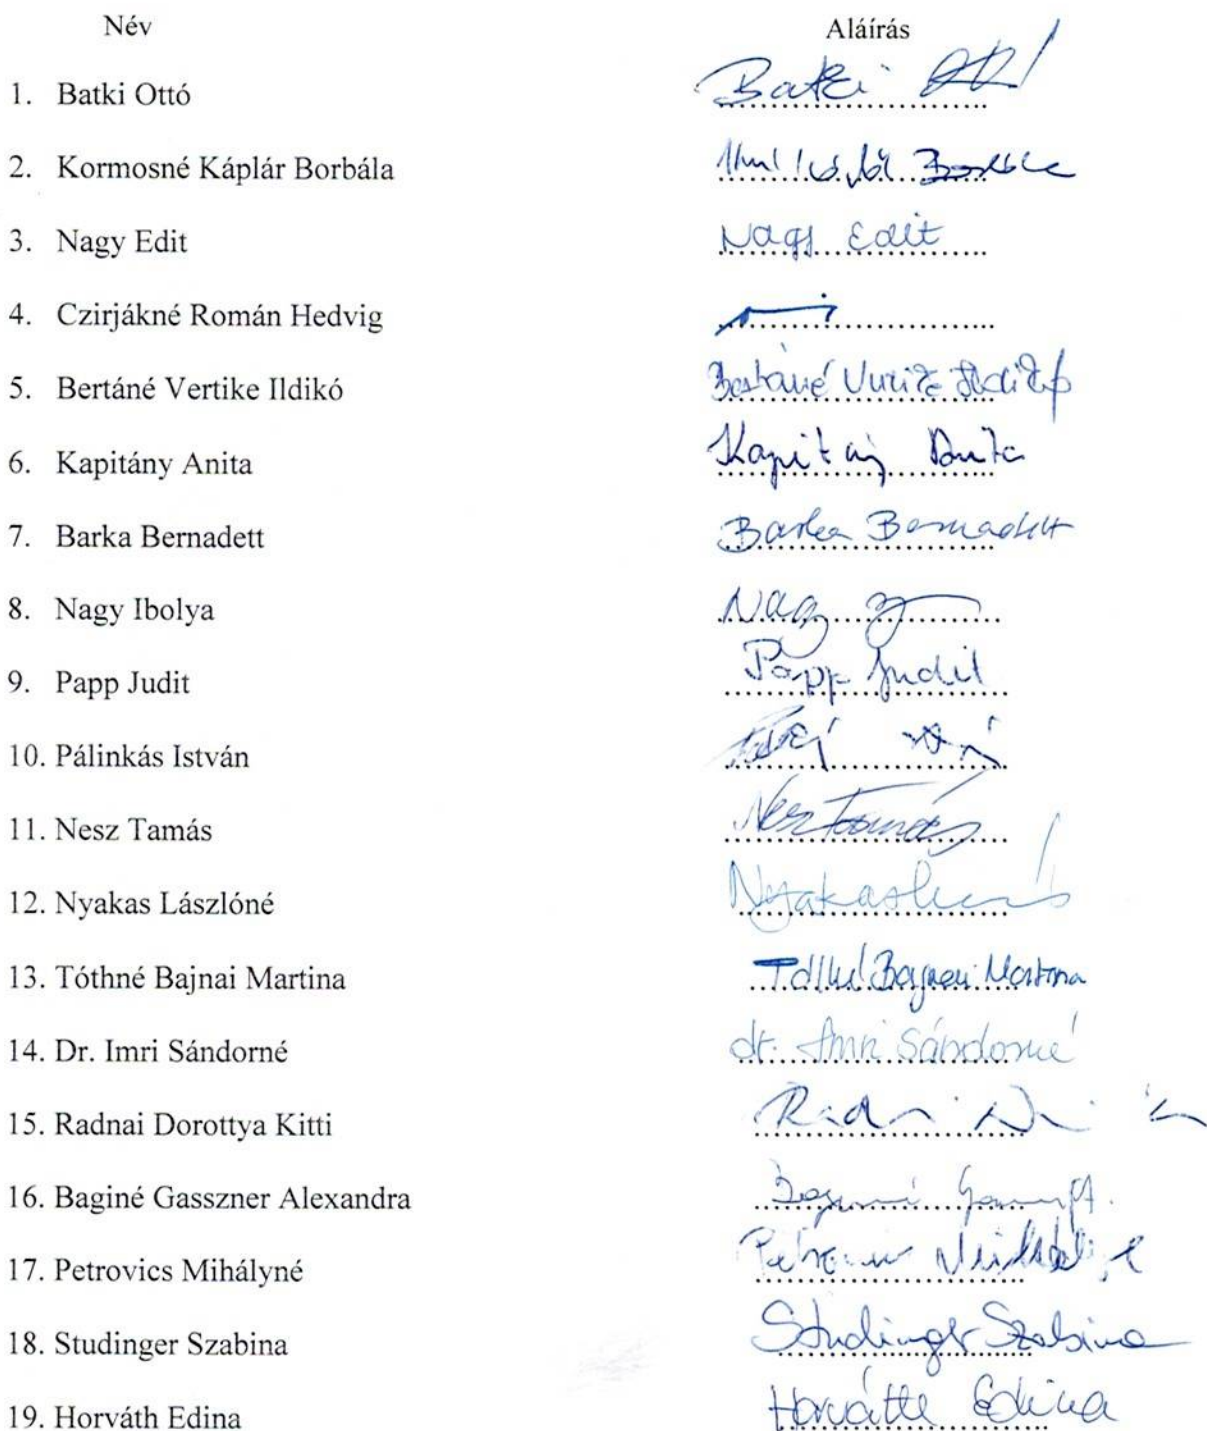 Név Aláírás
1. Batki Ottó Batki
2. Kormosné Káplár Borbála
3. Nagy Edit Nagy Edit
4. Czirjákné Román Hedvig
5. Bertáné Vertike Ildikó Bertáné
6. Kapitány Anita Kapitány Anita
7. Barka Bernadett Barka Bernadett
8. Nagy Ibolya Nagy
9. Papp Judit Papp Judit
10. Pálinkás István
11. Nesz Tamás Nesz Tamás
12. Nyakas Lászlóné Nyakas
13. Tóthné Bajnai Martina Tóthné Bajnai Martina
14. Dr. Imri Sándorné dr. Imri Sándorné
15. Radnai Dorottya Kitti
16. Baginé Gasszner Alexandra
17. Petrovics Mihályné
18. Studinger Szabina Studinger Szabina
19. Horváth Edina Horváth Edina